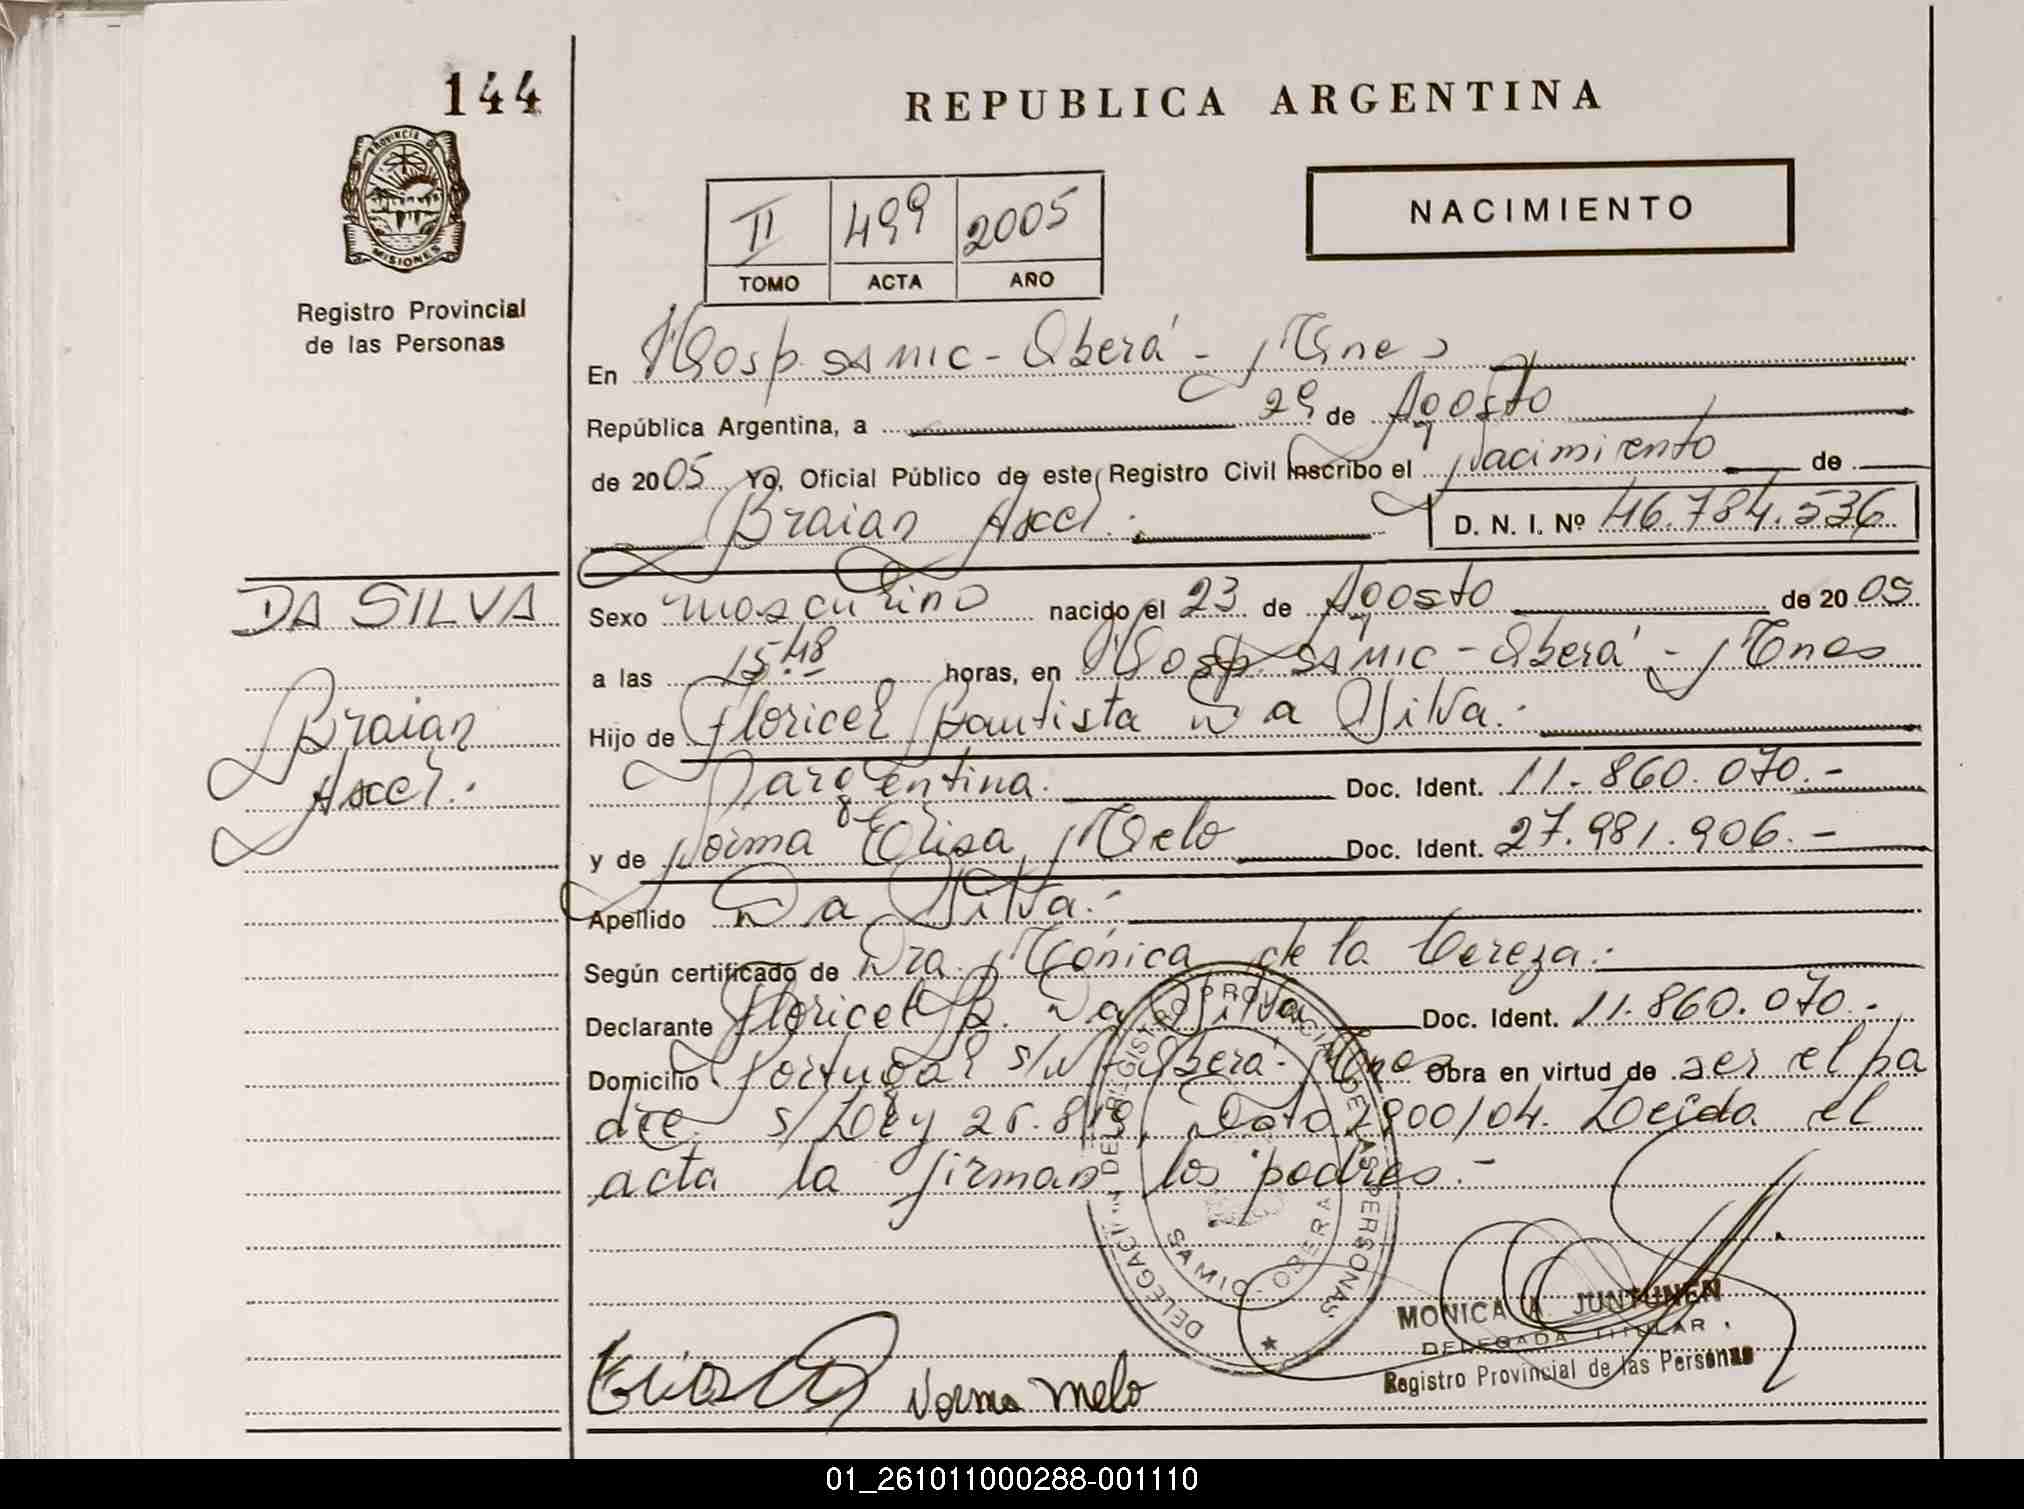 144
REPUBLICA ARGENTINA
PROVINCIA DE
MISIONES
Registro Provincial
de las Personas
II 499 2005
TOMO ACTA AÑO
NACIMIENTO
En Hosp. SAMIC - Oberá - Mnes
República Argentina, a 29 de Agosto
de 2005 Yo, Oficial Público de este Registro Civil Inscribo el Nacimiento de
Braian Axel.
D. N. I. Nº 46.784.536
DA SILVA
Braian
Axel.
Sexo masculino nacido el 23 de Agosto de 2005
a las 15.48 horas, en Hosp SAMIC - Oberá - Mnes
Hijo de Floricel Bautista Da Silva.-
argentina. Doc. Ident. 11.860.070.-
y de Norma Elisa Melo Doc. Ident. 27.981.906.-
Apellido Da Silva.-
Según certificado de Dra. Mónica de la Cereza.-
Declarante Floricel B. Da Silva Doc. Ident. 11.860.070.-
Domicilio Portugal s/N Oberá - Mnes Obra en virtud de ser el pa
dre. s/Ley 26.813, Dto 1900/04. Leída el
acta la firman los padres.-
DELEGACION DEL REGISTRO PROVINCIAL DE LAS PERSONAS
SAMIC - OBERA
MONICA A. JUNTUNEN
DELEGADA TITULAR
Registro Provincial de las Personas
Norma Melo
01_261011000288-001110